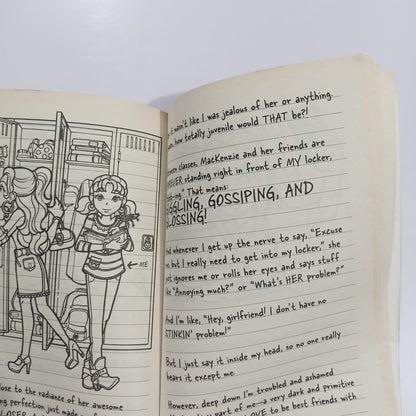 ← ME
lose to the radiance of her awesome
ng perfection just made
wasn't like I was jealous of her or anything.
how totally juvenile would THAT be?!
classes, MacKenzie and her friends are
standing right in front of MY locker,
That means:
GIGGLING, GOSSIPING, AND
GLOSSING!
And whenever I get up the nerve to say, "Excuse
me, but I really need to get into my locker," she
just ignores me or rolls her eyes and says stuff
like "Annoying much?" or "What's HER problem?"
And I'm like, "Hey, girlfriend! I don't have no
STINKIN' problem!"
But I just say it inside my head, so no one really
hears it except me.
However, deep down I'm troubled and ashamed
part of me—a very dark and primitive
LOVE to be best friends with